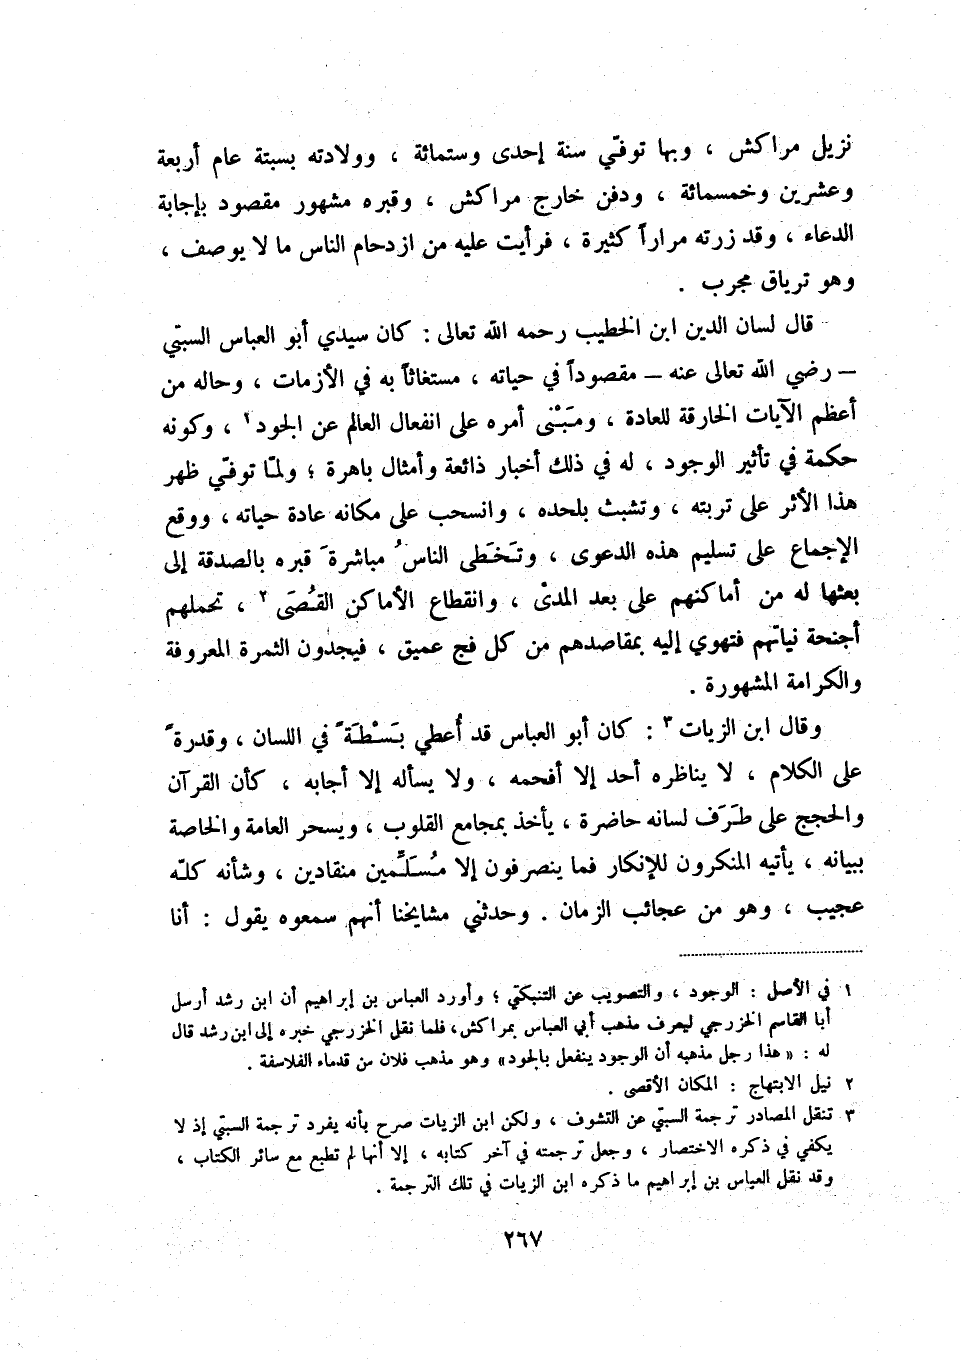 نزيل مراكش ، وبها توفّي سنة إحدى وستمائة ، وولادته بسبتة عام أربعة
وعشرين وخمسمائة ، ودفن خارج مراكش ، وقبره مشهور مقصود بإجابة
الدعاء ، وقد زرته مراراً كثيرة ، فرأيت عليه من ازدحام الناس ما لا يوصف ،
وهو ترياق مجرب .
قال لسان الدين ابن الخطيب رحمه الله تعالى : كان سيدي أبو العباس السبتي
— رضي الله تعالى عنه — مقصوداً في حياته ، مستغاثاً به في الأزمات ، وحاله من
أعظم الآيات الخارقة للعادة ، ومَبْنى أمره على انفعال العالم عن الجود ١ ، وكونه
حكمة في تأثير الوجود ، له في ذلك أخبار ذائعة وأمثال باهرة ؛ ولمّا توفّي ظهر
هذا الأثر على تربته ، وتشبث بلحده ، وانسحب على مكانه عادة حياته ، ووقع
الإجماع على تسليم هذه الدعوى ، وتَخَطى الناسُ مباشرةَ قبره بالصدقة إلى
بعثها له من أماكنهم على بعد المدىْ ، وانقطاع الأماكن القُصَى ٢ ، تحملهم
أجنحة نياتهم فتهوي إليه بمقاصدهم من كل فج عميق ، فيجدون الثمرة المعروفة
والكرامة المشهورة .
وقال ابن الزيات ٣ : كان أبو العباس قد أُعطي بَسْطَةً في اللسان ، وقدرةً
على الكلام ، لا يناظره أحد إلا أفحمه ، ولا يسأله إلا أجابه ، كأن القرآن
والحجج على طَرَف لسانه حاضرة ، يأخذ بمجامع القلوب ، ويسحر العامة والخاصة
ببيانه ، يأتيه المنكرون للإنكار فما ينصرفون إلا مُسَلِّمين منقادين ، وشأنه كلّه
عجيب ، وهو من عجائب الزمان . وحدثني مشايخنا أنهم سمعوه يقول : أنا
١ في الأصل : الوجود ، والتصويب عن التنبكتي ؛ وأورد العباس بن إبراهيم أن ابن رشد أرسل
أبا القاسم الخزرجي ليعرف مذهب أبي العباس بمراكش، فلما نقل الخزرجي خبره إلى ابن رشد قال
له : « هذا رجل مذهبه أن الوجود ينفعل بالجود» وهو مذهب فلان من قدماء الفلاسفة .
٢ نيل الابتهاج : المكان الأقصى .
٣ تنقل المصادر ترجمة السبتي عن التشوف ، ولكن ابن الزيات صرح بأنه يفرد ترجمة السبتي إذ لا
يكفي في ذكره الاختصار ، وجعل ترجمته في آخر كتابه ، إلا أنها لم تطبع مع سائر الكتاب ،
وقد نقل العباس بن إبراهيم ما ذكره ابن الزيات في تلك الترجمة .
٢٦٧